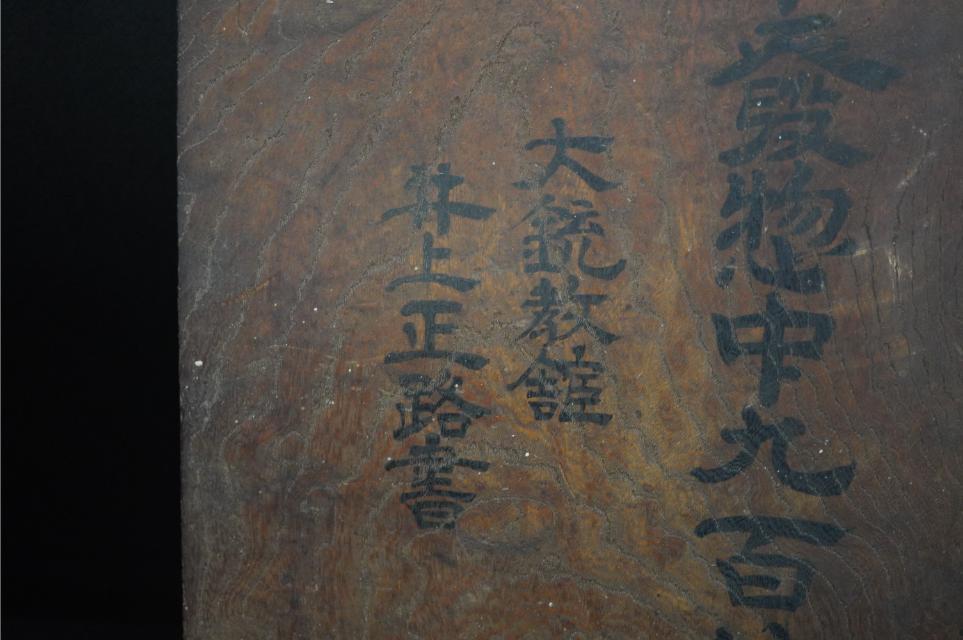 殿惣中九百
大銃教館
井上正路書